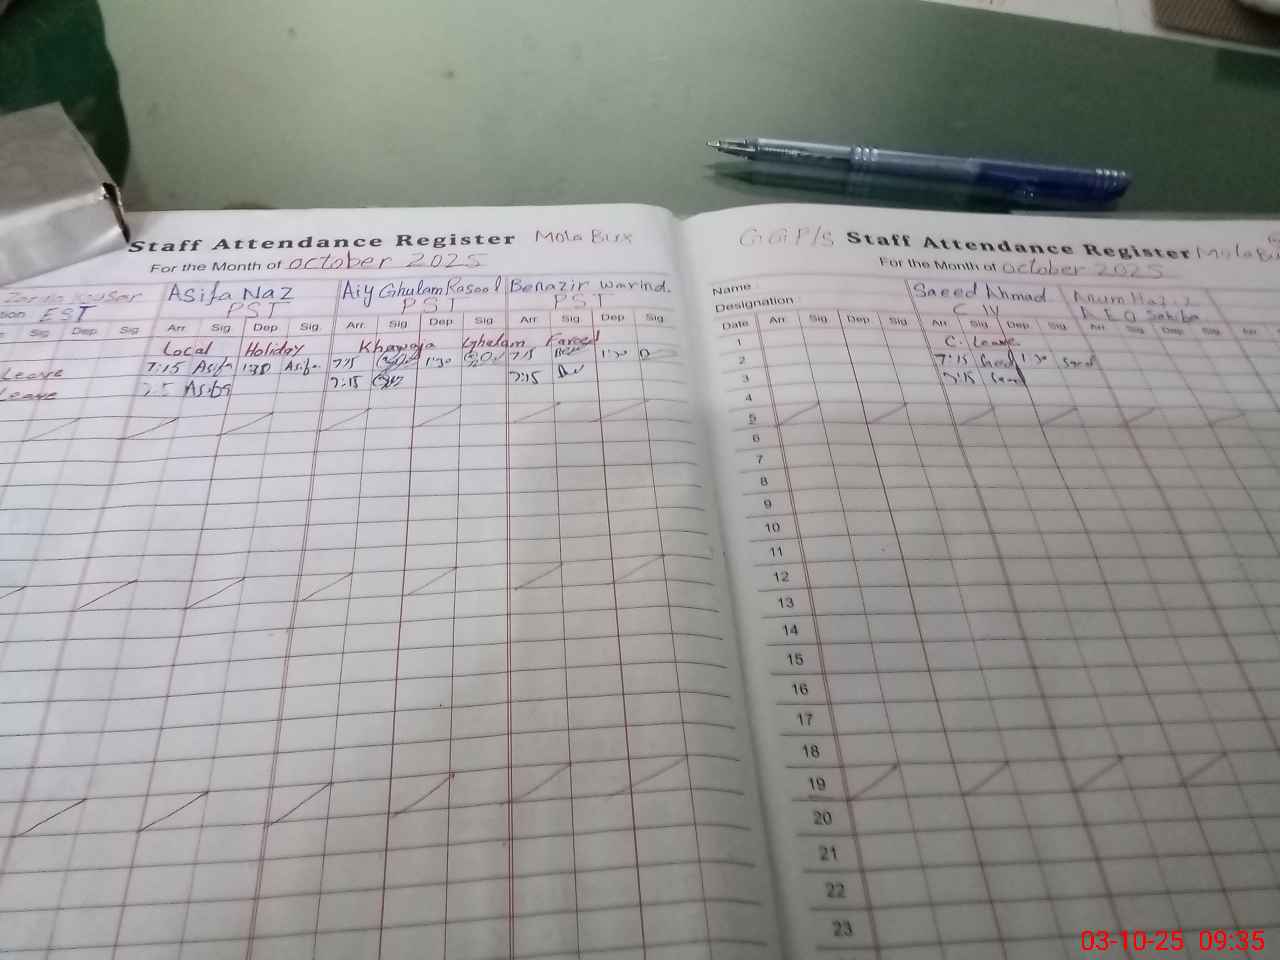 Staff Attendance Register Mola Bux
For the Month of October 2025
Asifa Naz Aiy Ghulam Rasool Benazir Warind.
EST PST PST PST
Sig Dep Sig Arr. Sig Dep Sig Arr. Sig Dep Sig Arr Sig Dep Sig
Local Holiday Khawaja Ghulam Fareed
Leave 7:15 Asifa 1:30 Asifa 7:15 1:30 7:15 1:30
Leave Asifa 7:15 7:15
GGP/S Staff Attendance Register Mola Bu
For the Month of October 2025
Name : Saeed Ahmad Anum
Designation : AEO Sahiba
Date Arr Sig Dep Sig Arr Sig Dep Sig Arr Sig Dep Sig Arr
1 C. Leave
2 7:15 Saeed 1:30 Saeed
3 7:15 Saeed
4
5
6
7
8
9
10
11
12
13
14
15
16
17
18
19
20
21
22
23
03-10-25 09:35